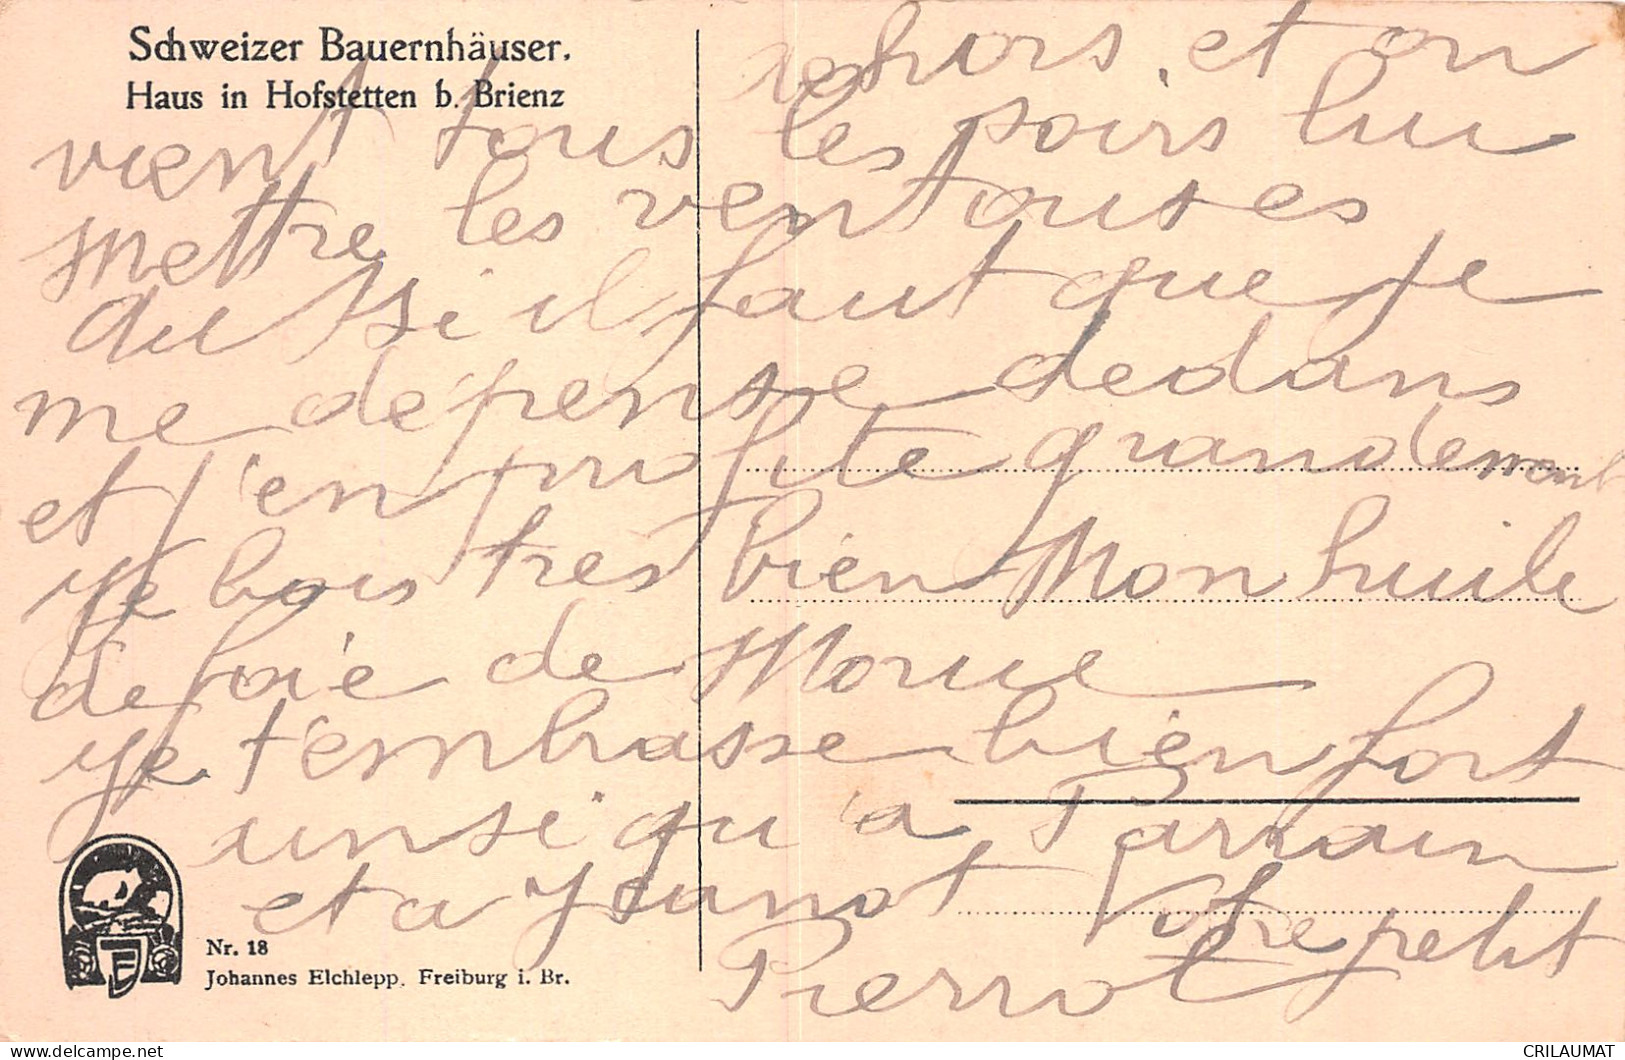 Schweizer Bauernhäuser.
Haus in Hofstetten b. Brienz
dehors et on
vient tous les soirs lui
mettre les ventouses
aussi il faut que je
me dépense dedans
et j'en profite grandement
je bois très bien Mon huile
de foie de Morue
je t'embrasse bien fort
ainsi qu'a Parrain
et a Jeannot Votre petit
Pierrot
Nr. 18
Johannes Elchlepp, Freiburg i. Br.
CRILAUMAT